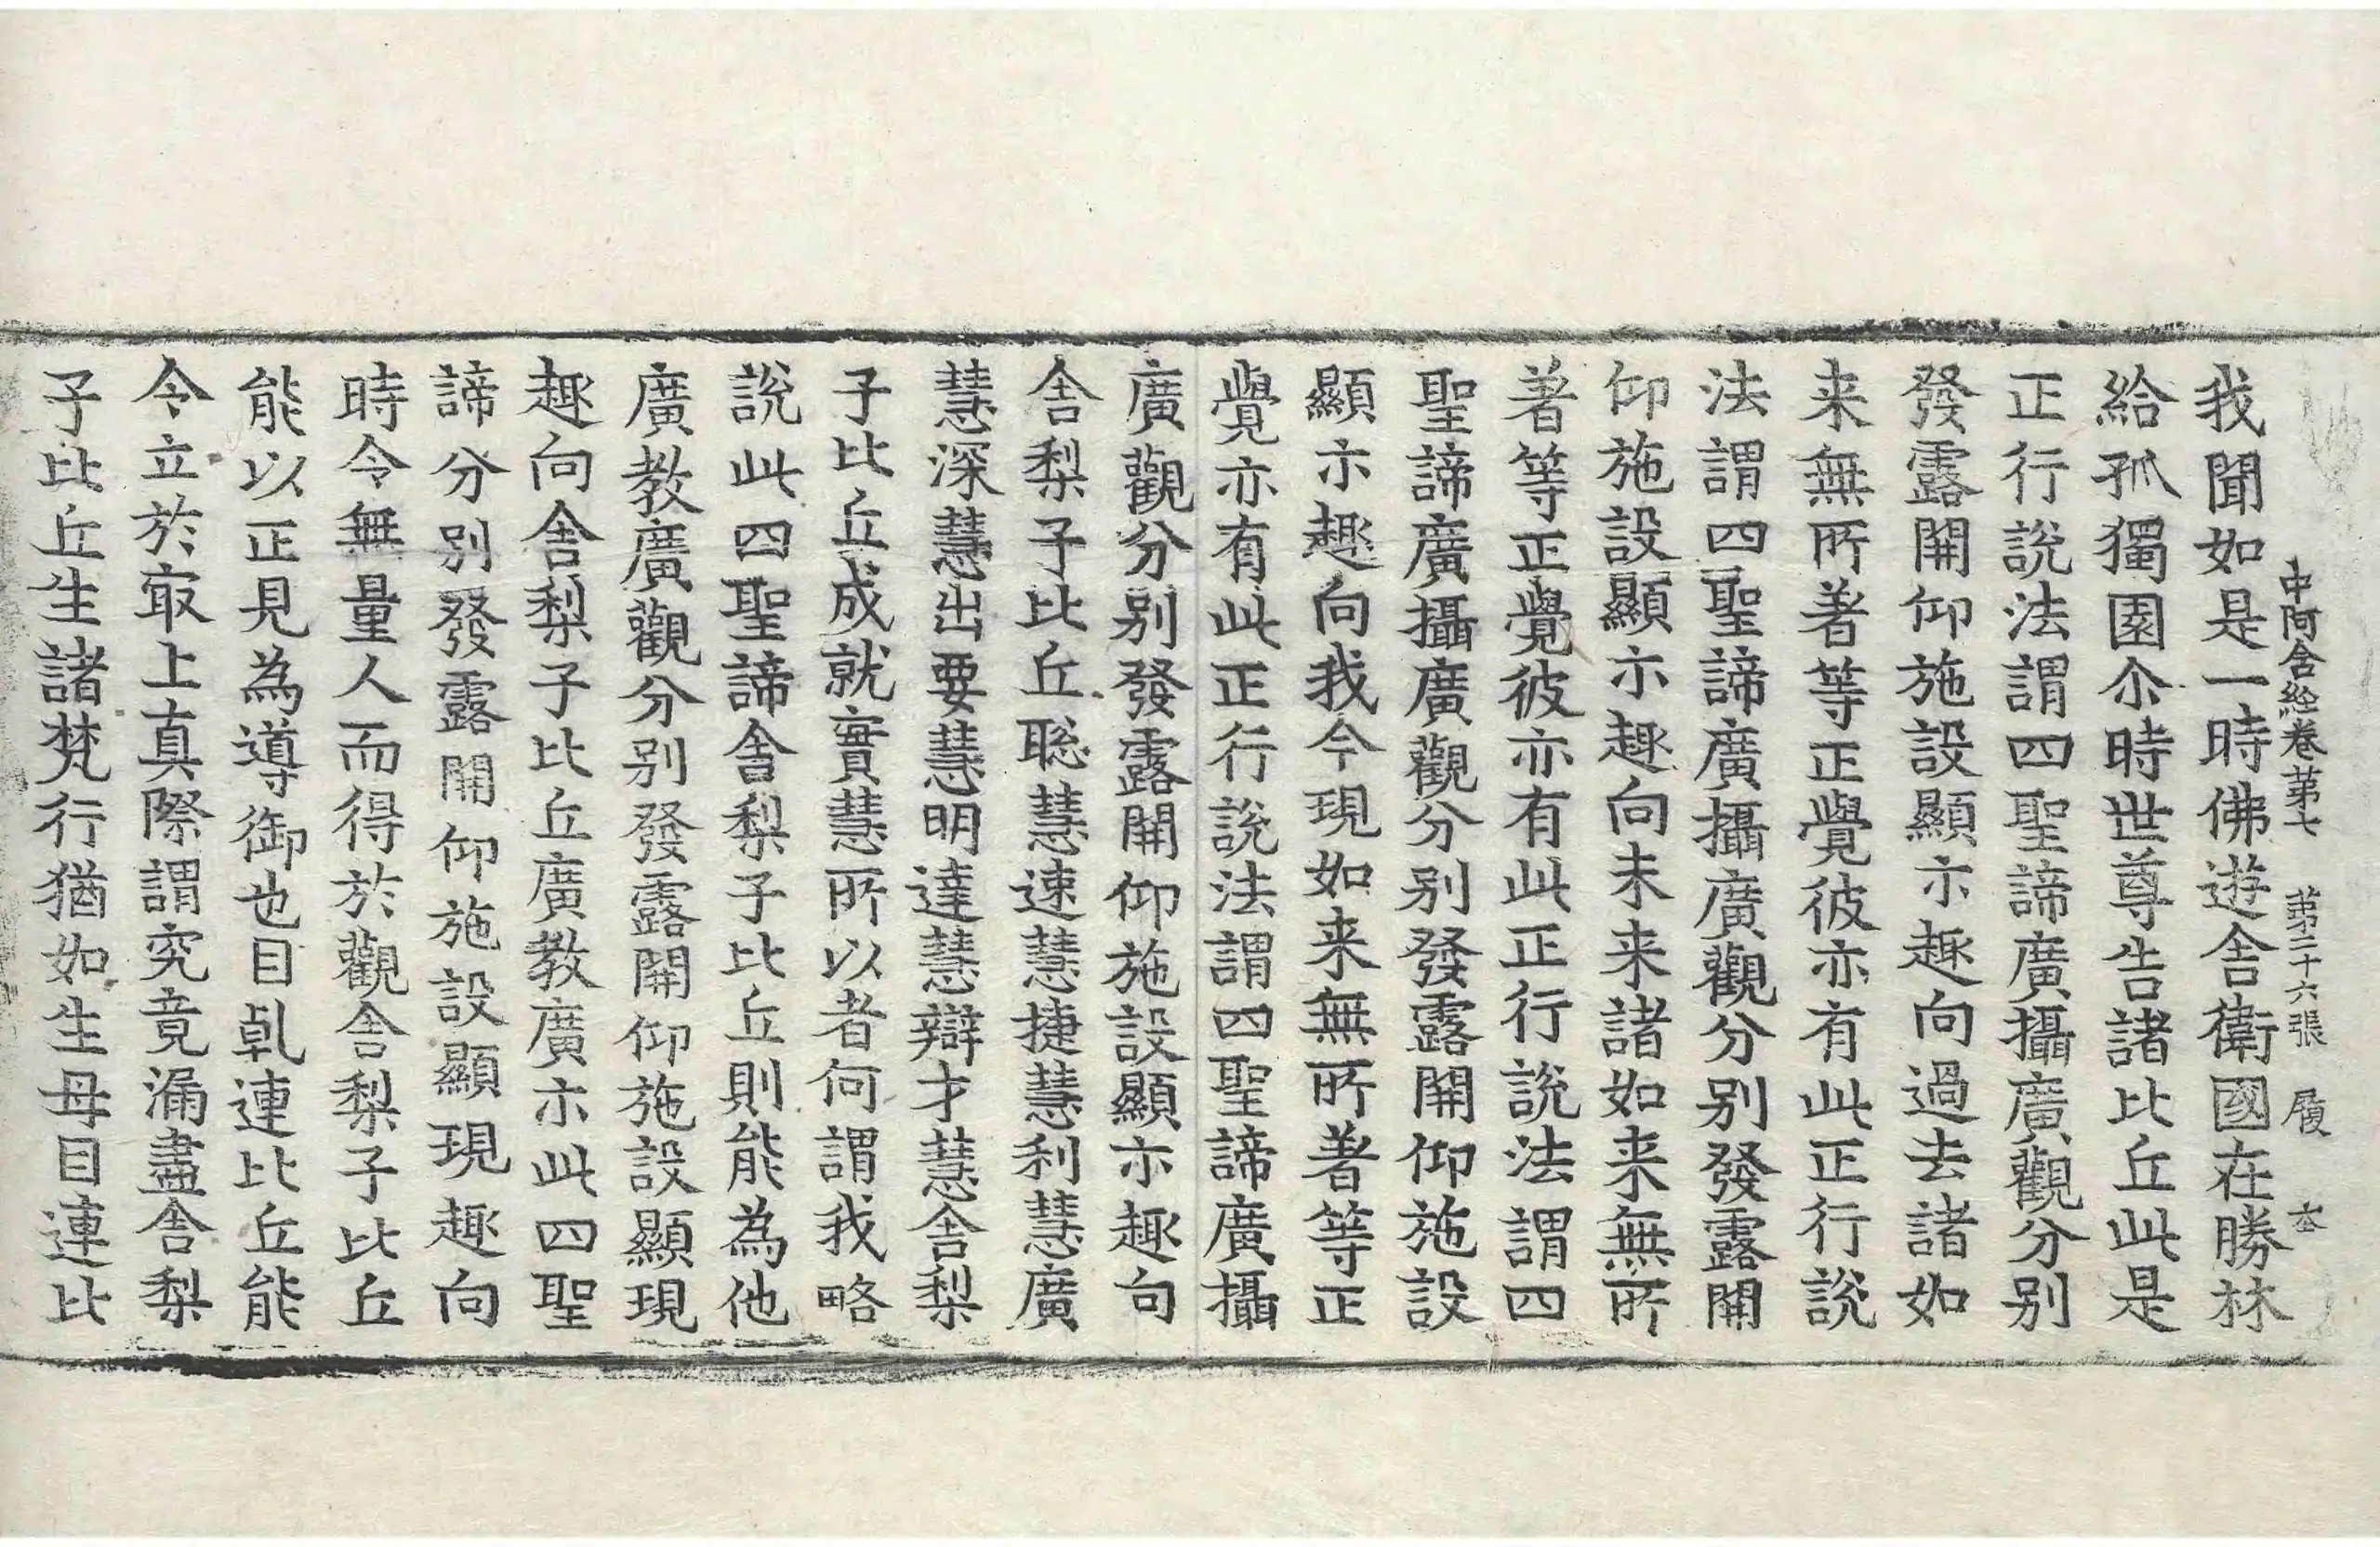 中阿含経卷苐七 苐二十六張 履
我聞如是一時佛遊舎衛國在勝林
給孤獨園尒時世尊告諸比丘此是
正行說法謂四聖諦廣攝廣觀分别
發露開仰施設顯示趣向過去諸如
来無所著等正覺彼亦有此正行說
法謂四聖諦廣攝廣觀分别發露開
仰施設顯示趣向未来諸如来無所
著等正覺彼亦有此正行說法謂四
聖諦廣攝廣觀分别發露開仰施設
顯示趣向我今現如来無所著等正
覺亦有此正行說法謂四聖諦廣攝
廣觀分别發露開仰施設顯示趣向
舎梨子比丘聡慧速慧捷慧利慧廣
慧深慧出要慧明達慧辯才慧舎梨
子比丘成就實慧所以者何謂我略
說此四聖諦舎梨子比丘則能為他
廣教廣觀分别發露開仰施設顯現
趣向舎梨子比丘廣教廣示此四聖
諦分别發露開仰施設顯現趣向
時令無量人而得於觀舎梨子比丘
能以正見為導御也目乹連比丘能
令立於㝡上真際謂究竟漏盡舎梨
子比丘生諸梵行猶如生母目連比